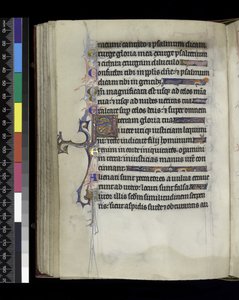 meum: cantabo & psalmum dicam
Exurge gloria mea exurge psalterium
& cithara exurgam diluculo
Confitebor tibi in pplis dñe & psalmum
dicam tibi in gentibus
Qm magnificata est usq; ad celos mia
tua: & usq; ad nubes veritas tua
Exaltare sup celos deus: & super omnem
terram gloria tua
Si vere utiq; iusticiam loquimi
ni: recte iudicate filij hominum
Etenim in corde iniquitates operamini
in terra: iniusticias manus vre con
cinnant
Alienati sunt peccatores a vulva errave
runt ab utero: locuti sunt falsa
Furor illis scdm similitudinem serpen
tis: sicut aspidis surde & obturantis au